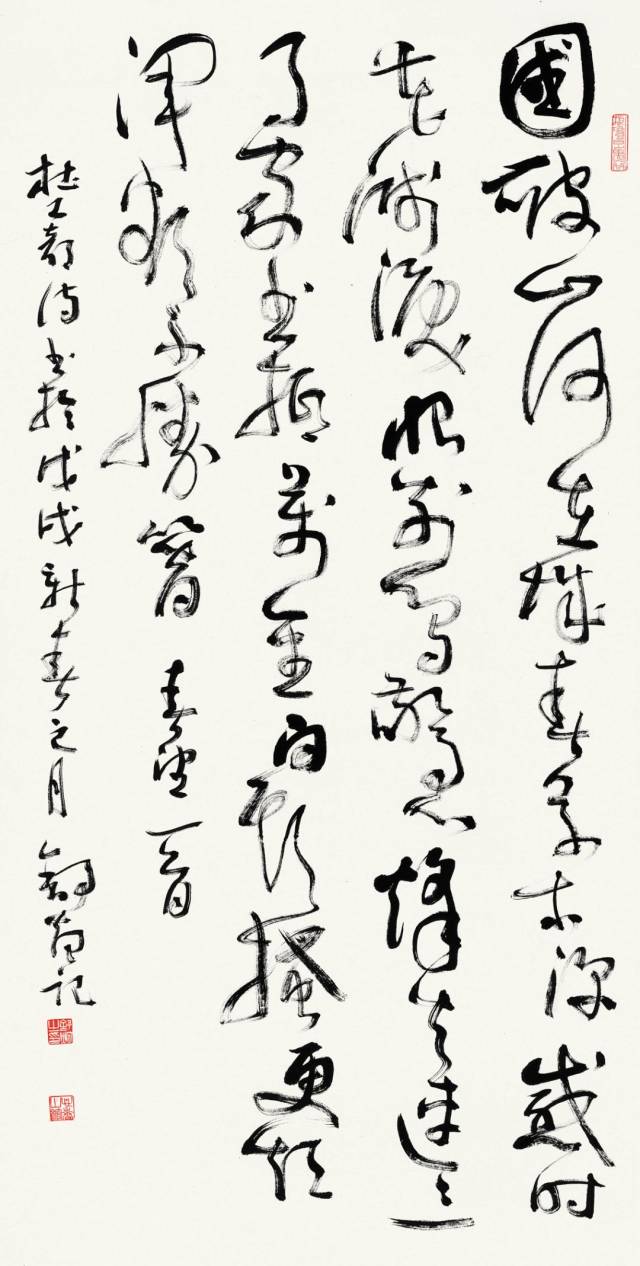 國破山河在城春草木深感时
花濺淚恨別鳥驚心烽火連三
月家書抵萬金白頭搔更短
渾欲不勝簪 春望一首
杜工部詩書於戊戌新春之月 舒記